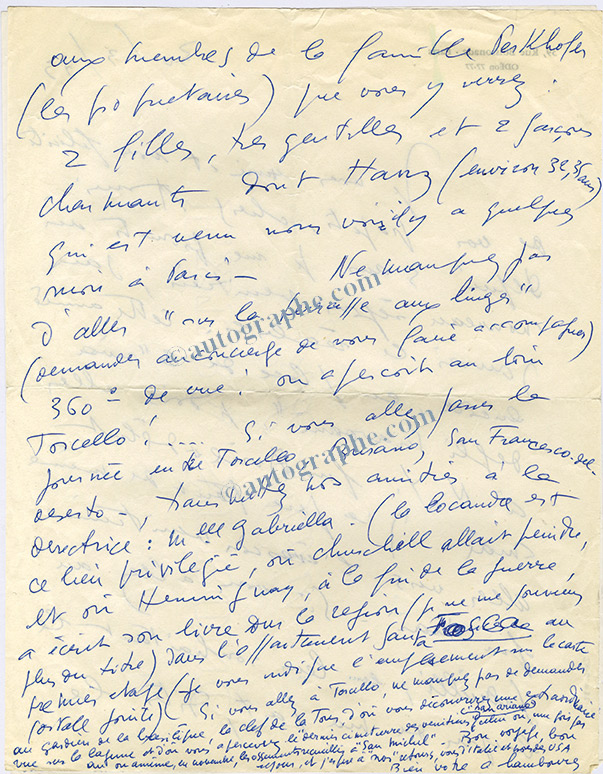 aux membres de la famille Perkhofer
(les propriétaires) que vous y verrez :
2 filles, très gentilles et 2 garçons
charmants dont Hans (environ 32, 35 ans)
qui est venu nous voir il y a quelques
mois à Paris — Ne manquez pas
d'aller "sur la terrasse aux linges"
(demandez au concierge de vous faire accompagner)
360° de vue ! on aperçoit au loin
Torcello ! .... Si vous allez passer la
journée entre Torcello, Burano, San Francesco-del-
deserto —, transmettez nos amitiés à la
directrice : Melle Gabriella - (la locanda est
ce lieu privilégié, où Churchill allait peindre,
et où Hemingway, à la fin de la guerre,
a écrit son livre sur la région (je ne me souviens
plus du titre) dans l'appartement Santa Fosca au
premier étage - je vous indique l'emplacement sur la carte
postale jointe) Si vous allez à Torcello, ne manquez pas de demander
au gardien de la basilique, la clef de la Tour, d'où vous découvrirez une extraordinaire
vue sur la lagune et d'où vous apercevrez le "dernier cimetière des vénitiens" 
("San Ariano")
où, une fois par
an ou année, en novembre, les ossements recueillis à "San Michel"
Bon voyage, bon
séjour, et j'espère à nos retours, vous d'Italie et nous des USA
Bien votre